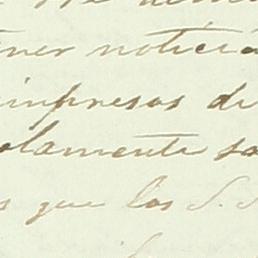 ner noticia
impresos de
olamente sa
s que los S. S